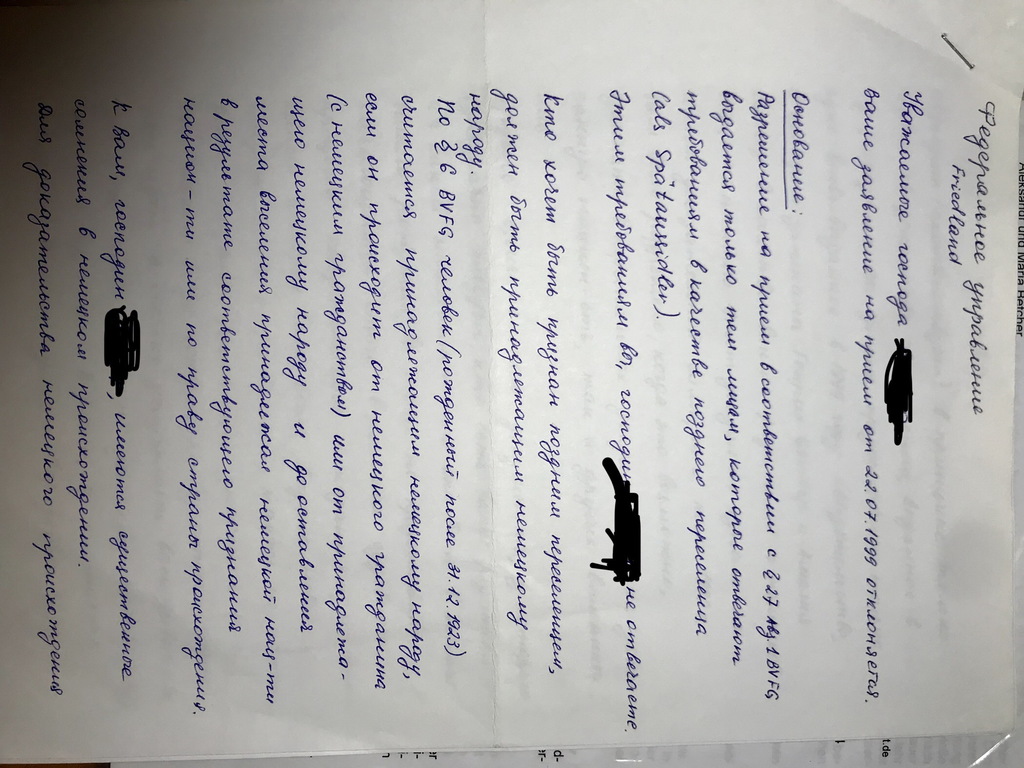 Aleksandr und Maria Batcher
Федеральное управление
Friedland
Уважаемые господа
Ваше заявление на прием от 22.07.1999 отклоняется.
Основание:
Разрешение на прием в соответствии с § 27 Abs 1 BVFG
выдается только тем лицам, которые отвечают
требованиям в качестве позднего переселенца
(als Spätaussiedler)
Этим требованиям Вы, господин не отвечаете.
Кто хочет быть признан поздним переселенцем,
должен быть принадлежащим немецкому
народу.
По § 6 BVFG человек (рожденный после 31.12.1923)
считается принадлежащим немецкому народу,
если он происходит от немецкого гражданина
(с немецким гражданством) или от принадлежа-
щего немецкому народу и до оставления
места выселения принадлежал немецкой нац-ти
в результате соответствующего признания
национ-ти или по праву страны происхождения.
К Вам, господин , имеются существенные
сомнения в немецком происхождении.
Для доказательства немецкого происхождения
t.de
d-
er-
er
i-
i-
n